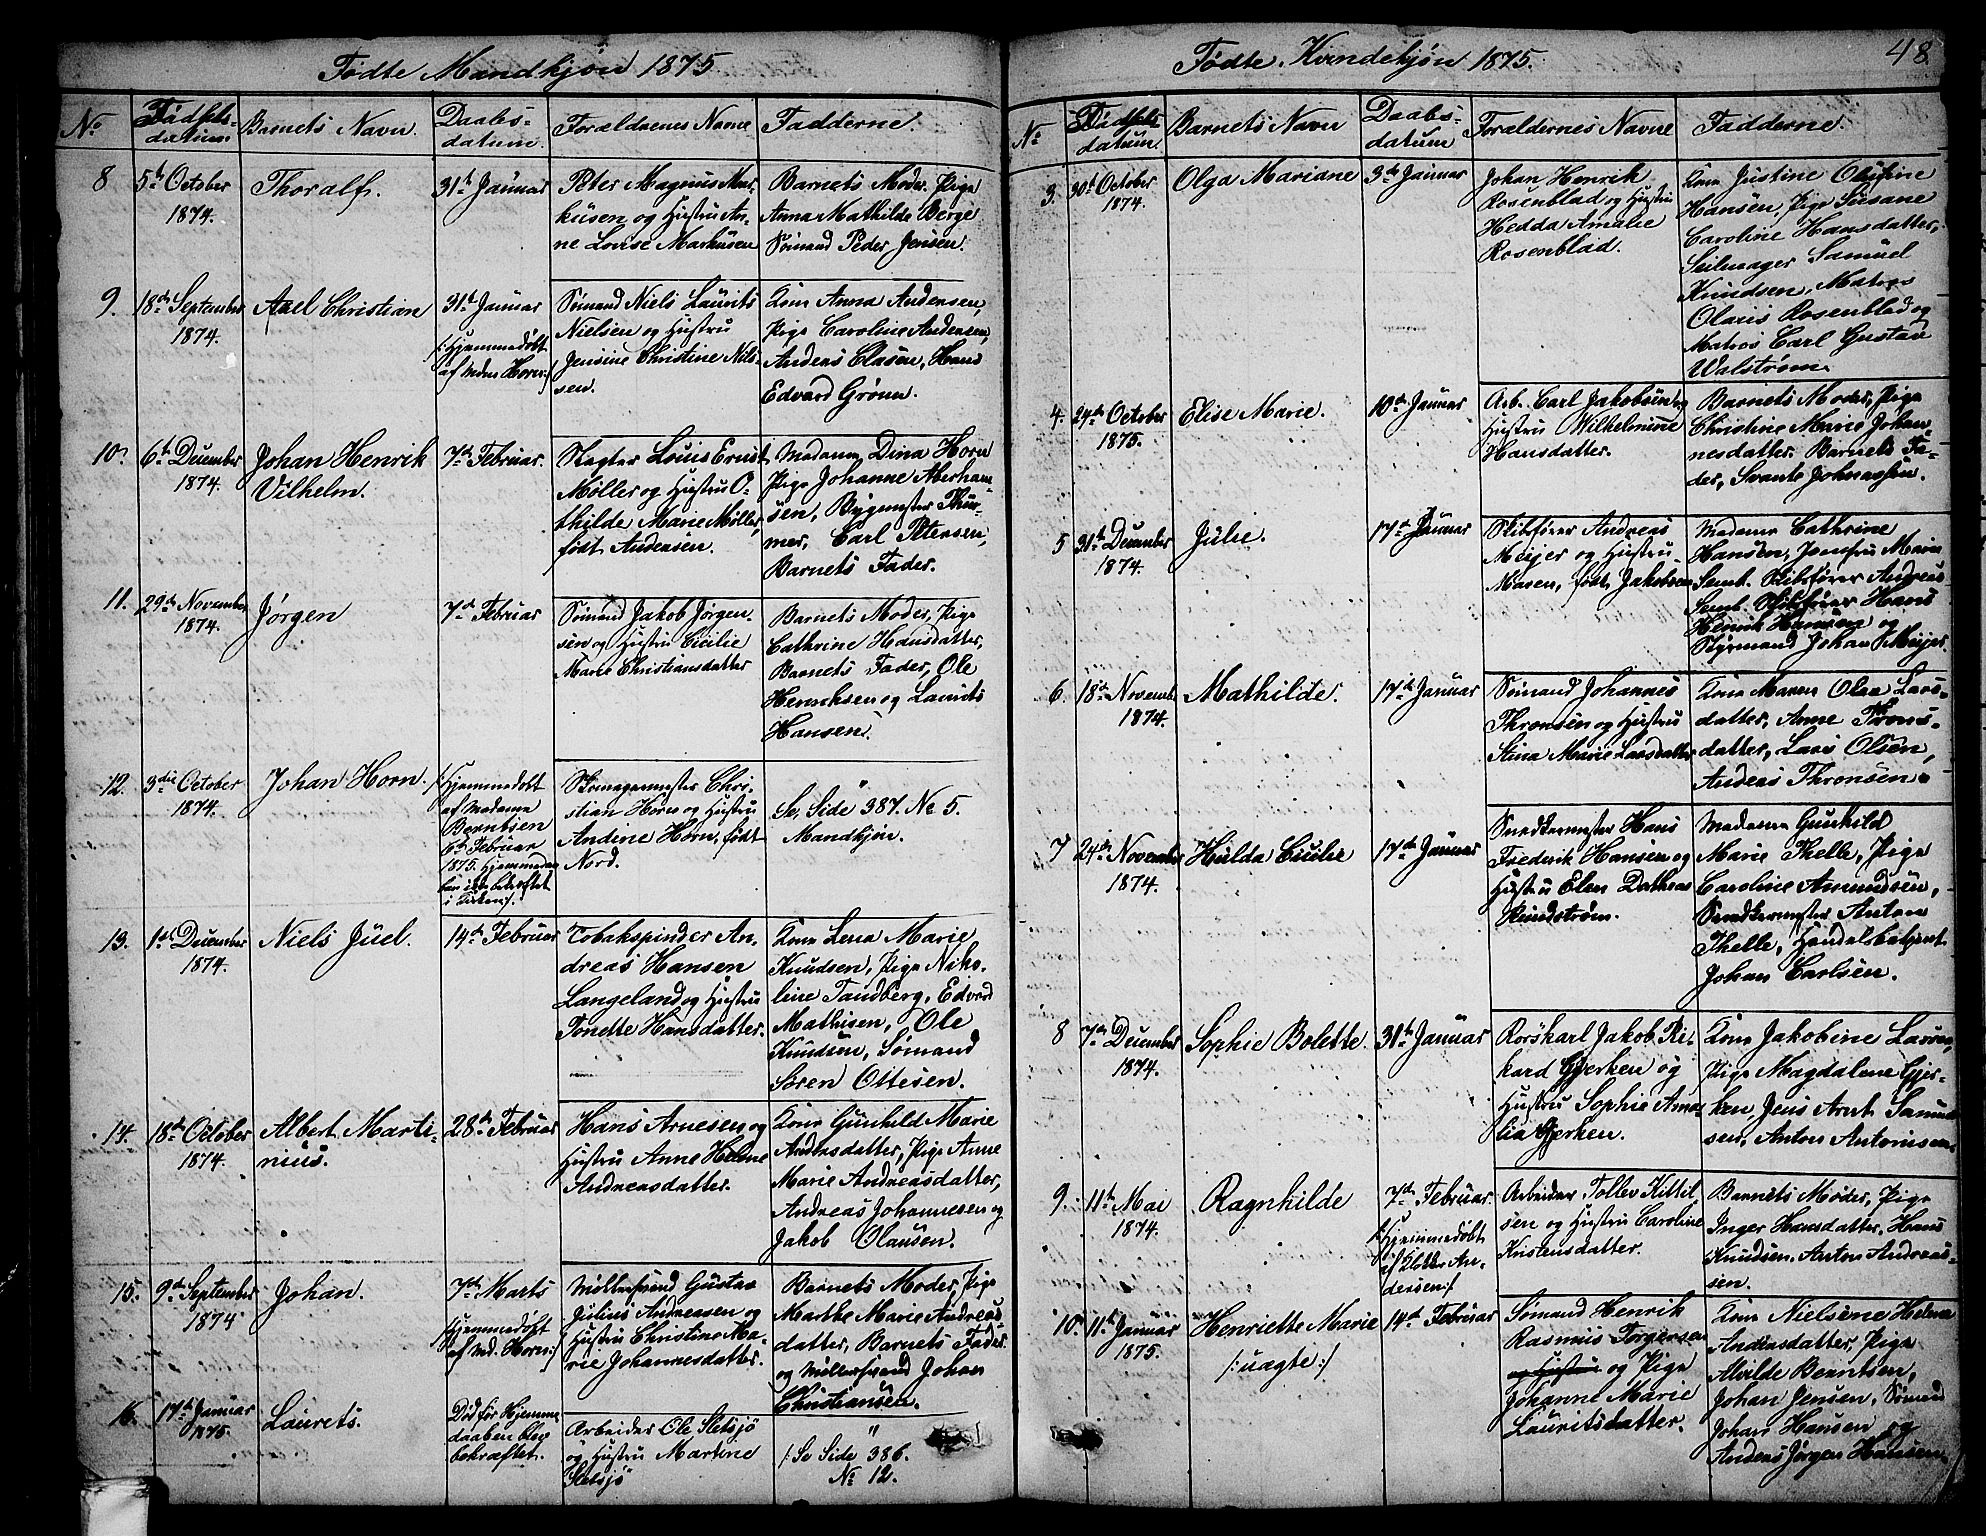 Fødte Mandkjøn 1875
No
Fødsels-
datum.
Barnets Navn.
Daabs-
datum.
Forældrenes Navne
Fadderne.
8
5te October
1874.
Thoralf.
31te Januar
Peter Magnus Mar-
kusen og Hustru An-
ne Louise Markusen
Barnets Moder, Pige
Anna Mathilde Berge
Sømand Peder Jensen.
9.
18de September
1874.
Axel Christian
31te Januar
/:Hjemmedøbt
af Mdm Horn:/
Sømand Niels Laurits
Nielsen og Hustru
Jensine Christine Niel-
sen.
Kone Anna Andersen,
Pige Caroline Andersen,
Anders Clasen, Hans
Edvard Grønn.
10.
6te December
1874.
Johan Henrik
Vilhelm.
7de Februar.
Slagter Louis Ernst
Møller og Hustru O-
thilde Marie Møller,
født Andersen.
Madame Dina Horn
Pige Johanne Aberham-
sen, Bygmester Thur-
mer, Carl Petersen,
Barnets Fader.
11.
29de November
1874.
Jørgen
7de Februar
Sømand Jakob Jørgen-
sen og Hustru Cicilie
Marie Christiansdatter
Barnets Moder, Pige
Cathrine Hansdatter,
Barnets Fader, Ole
Henriksen og Laurits
Hansen.
12.
3die October
1874.
Johan Horn.
/:Hjemmedøbt
af Madame
Berntsen
6te Februar
1875. Hjemmedaa-
ben ikke bekræftet
i Kirken:/.
Skomagermester Chri-
stian Horn og Hustru
Andine Horn, født
Nord.
"
Se, Side 387. No 5.
Mandkjøn.
13.
1ste December
1874.
Niels Juel.
14de Februar
Tobakspinder An-
dreas Hansen
Langeland og Hustru
Tonette Hansdatter.
Kone Lena Marie
Knudsen, Pige Niko-
line Tandberg, Edvard
Mathisen, Ole
Knudsen, Sømand
Søren Ottesen.
14.
18de October
1874.
Albert Marti-
nius.
28de Februar
Hans Arnesen og
Hustru Anne Helene
Andreasdatter.
Kone Gunhild Marie
Andersdatter, Pige Anne
Marie Andreasdatter,
Andreas Johannesen og
Jakob Olausen.
15.
9de September
1874
Johan.
7de Marts
/:Hjemmedøbt
af Md. Horn:/
Møllersvend Gustav
Julius Andreasen og
Hustru Christine Ma-
rie Johannesdatter.
Barnets Moder, Pige
Marthe Marie Andreas-
datter, Barnets Fader
og Møllersvend Johan
Christiansen.
16.
17de Januar
1875.
Laurets.
Død før Hjemme
daaben blev
bekræftet.
Arbeider Ole Sletsjö
og Hustru Martine
Sletsjö
"
/:Se Side 386.
No 12.
Fødte Kvindekjøn 1875.
48
No
Fødsels
datum.
Barnets Navn
Daabs-
datum
Forældernes Navne
Fadderne.
3.
30te October
1874.
Olga Mariane
3de Januar
Johan Henrik
Rosenblad og Hustru
Hedda Amalie
Rosenblad.
Kone Justine Olufine
Hansen, Pige Susane
Caroline Hansdatter,
Seilmager Samuel
Knudsen, Matros
Olaus Rosenblad og
Matros Carl Gustav
Walstrøm.
4.
24de October
1875.
Elise Marie.
10de Januar
Arb. Carl Jakobsen og
Hustru Wilhelmine
Hansdatter.
Barnets Moder, Pige
Christine Marie Johan-
nesdatter, Barnets Fa-
der, Svante Johnassen.
5
31te December
1874.
Julie.
17de Januar
Skibsfører Andreas
Meijer og Hustru
Maren, født Jakobsen
Madame Cathrine
Hansen, Jomfru Marie
Semb. Skibsfører Andreas
Semb. Skibsfører Hans
Henrik Hansen og
Styrmand Johan Meijer.
6.
18de Novemb.
1874.
Mathilde.
17de Januar
Sømand Johannes
Thronsen og Hustru
Stina Marie Larsdatter
Kone Maren Olea Lars-
datter, Anne Throns-
datter, Lars Olsen,
Anders Thronsen.
7
24de November
1874.
Hulda Cicilie
17de Januar
Snedkermester Hans
Frederik Hansen og
Hustru Elen Dorthea
Rundstrøm.
Madame Gunhild
Marie Thelle, Pige
Caroline Amundsen,
Snedkermester Anton
Thelle, Handelsbetjent
Johan Carlsen.
8
7de December
1874.
Sophie Bolette.
31te Januar
Rorskarl Jakob Ri-
kard Gjerken og
Hustru Sophie Ama-
lia Gjerken.
Kone Jakobine Larsen,
Pige Magdalene Gjer-
ken, Jens Arnt Samuel-
sen, Anton Antonisen.
9.
11te Mai
1874.
Ragnhilde
7de Februar
/:Hjemmedøbt
af An-
dersen:/
Arbeider Tollev Kittil-
sen og Hustru Caroline
Kristensdatter.
Barnets Moder, Pige
Inger Hansdatter, Hans
Knudsen, Anton Andreas-
sen.
10.
11te Januar
1875.
Henriette Marie
/:uægte:/
14de Februar
Sømand Henrik
Rasmus Torgersen
og Hustru og Pige
Johanne Marie
Lauritsdatter.
Kone Nielsine Helene
Andersdatter, Pige
Alvilde Berntsen,
Johan Jensen, Sømand
Johan Hansen og
Anders Jørgen Hansen.